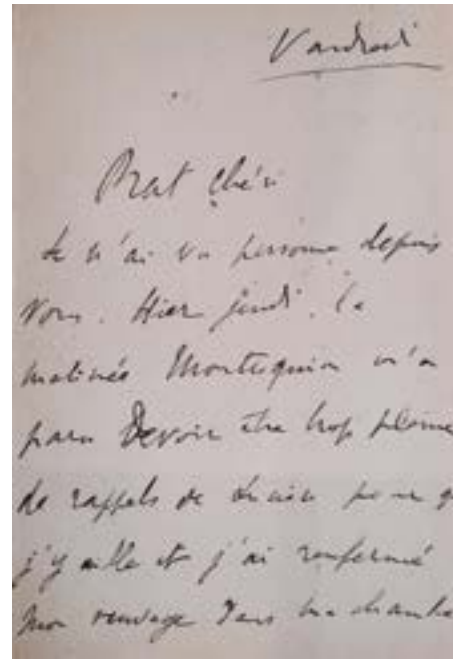 Vendredi
Prat chéri
Je n'ai vu personne depuis
vous. Hier jeudi, la
matinée Montesquiou m'a
paru Devoir etre trop pleine
de rappels de pour q
j'y aille et j'ai renfermé
mon veuvage dans ma chambre